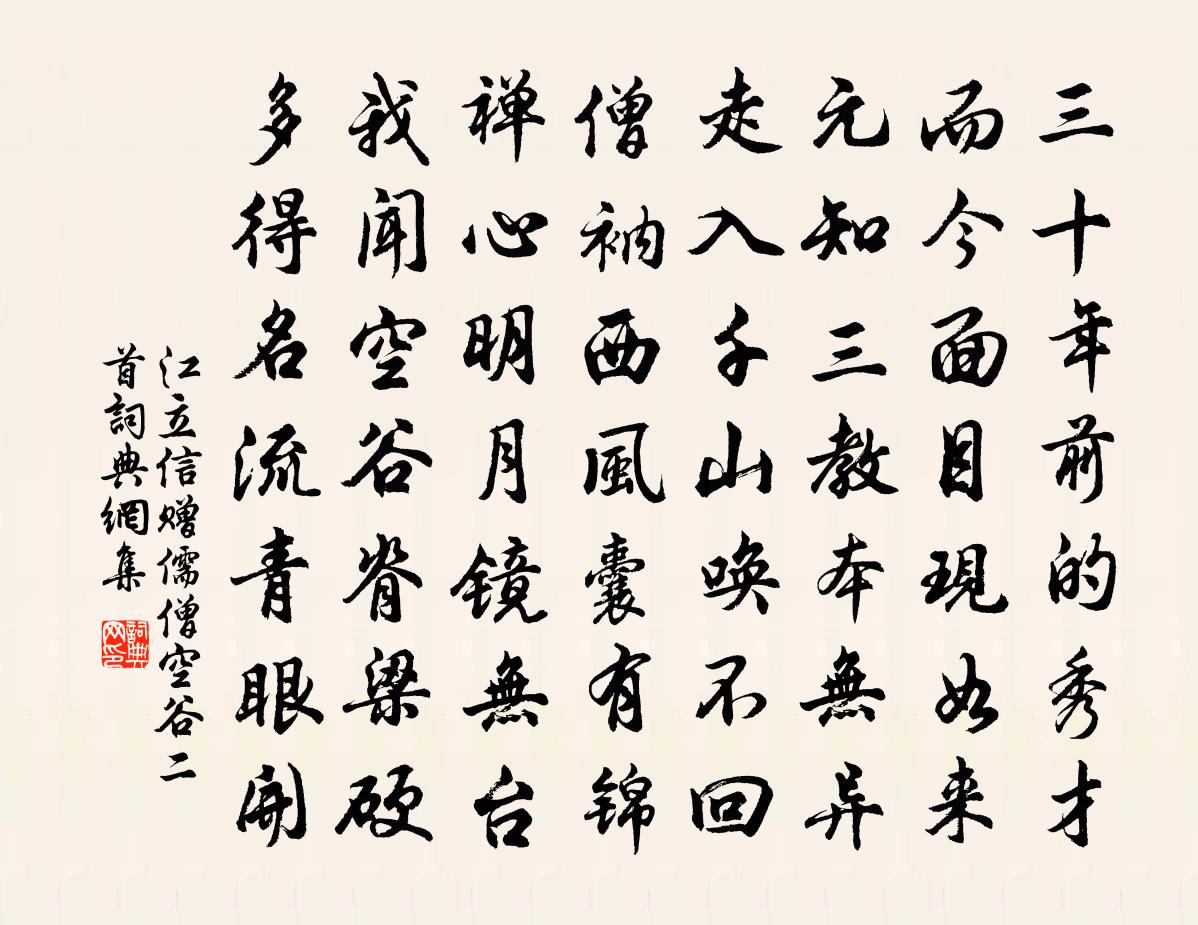 三十年前的秀才
而今面目現如来
元知三教本無异
走入千山唤不回
僧衲西風囊有锦
禅心明月镜無台
我闻空谷脊梁硬
多得名流青眼開
江立信赠儒僧空谷二
首詞典網集
詞典
网印